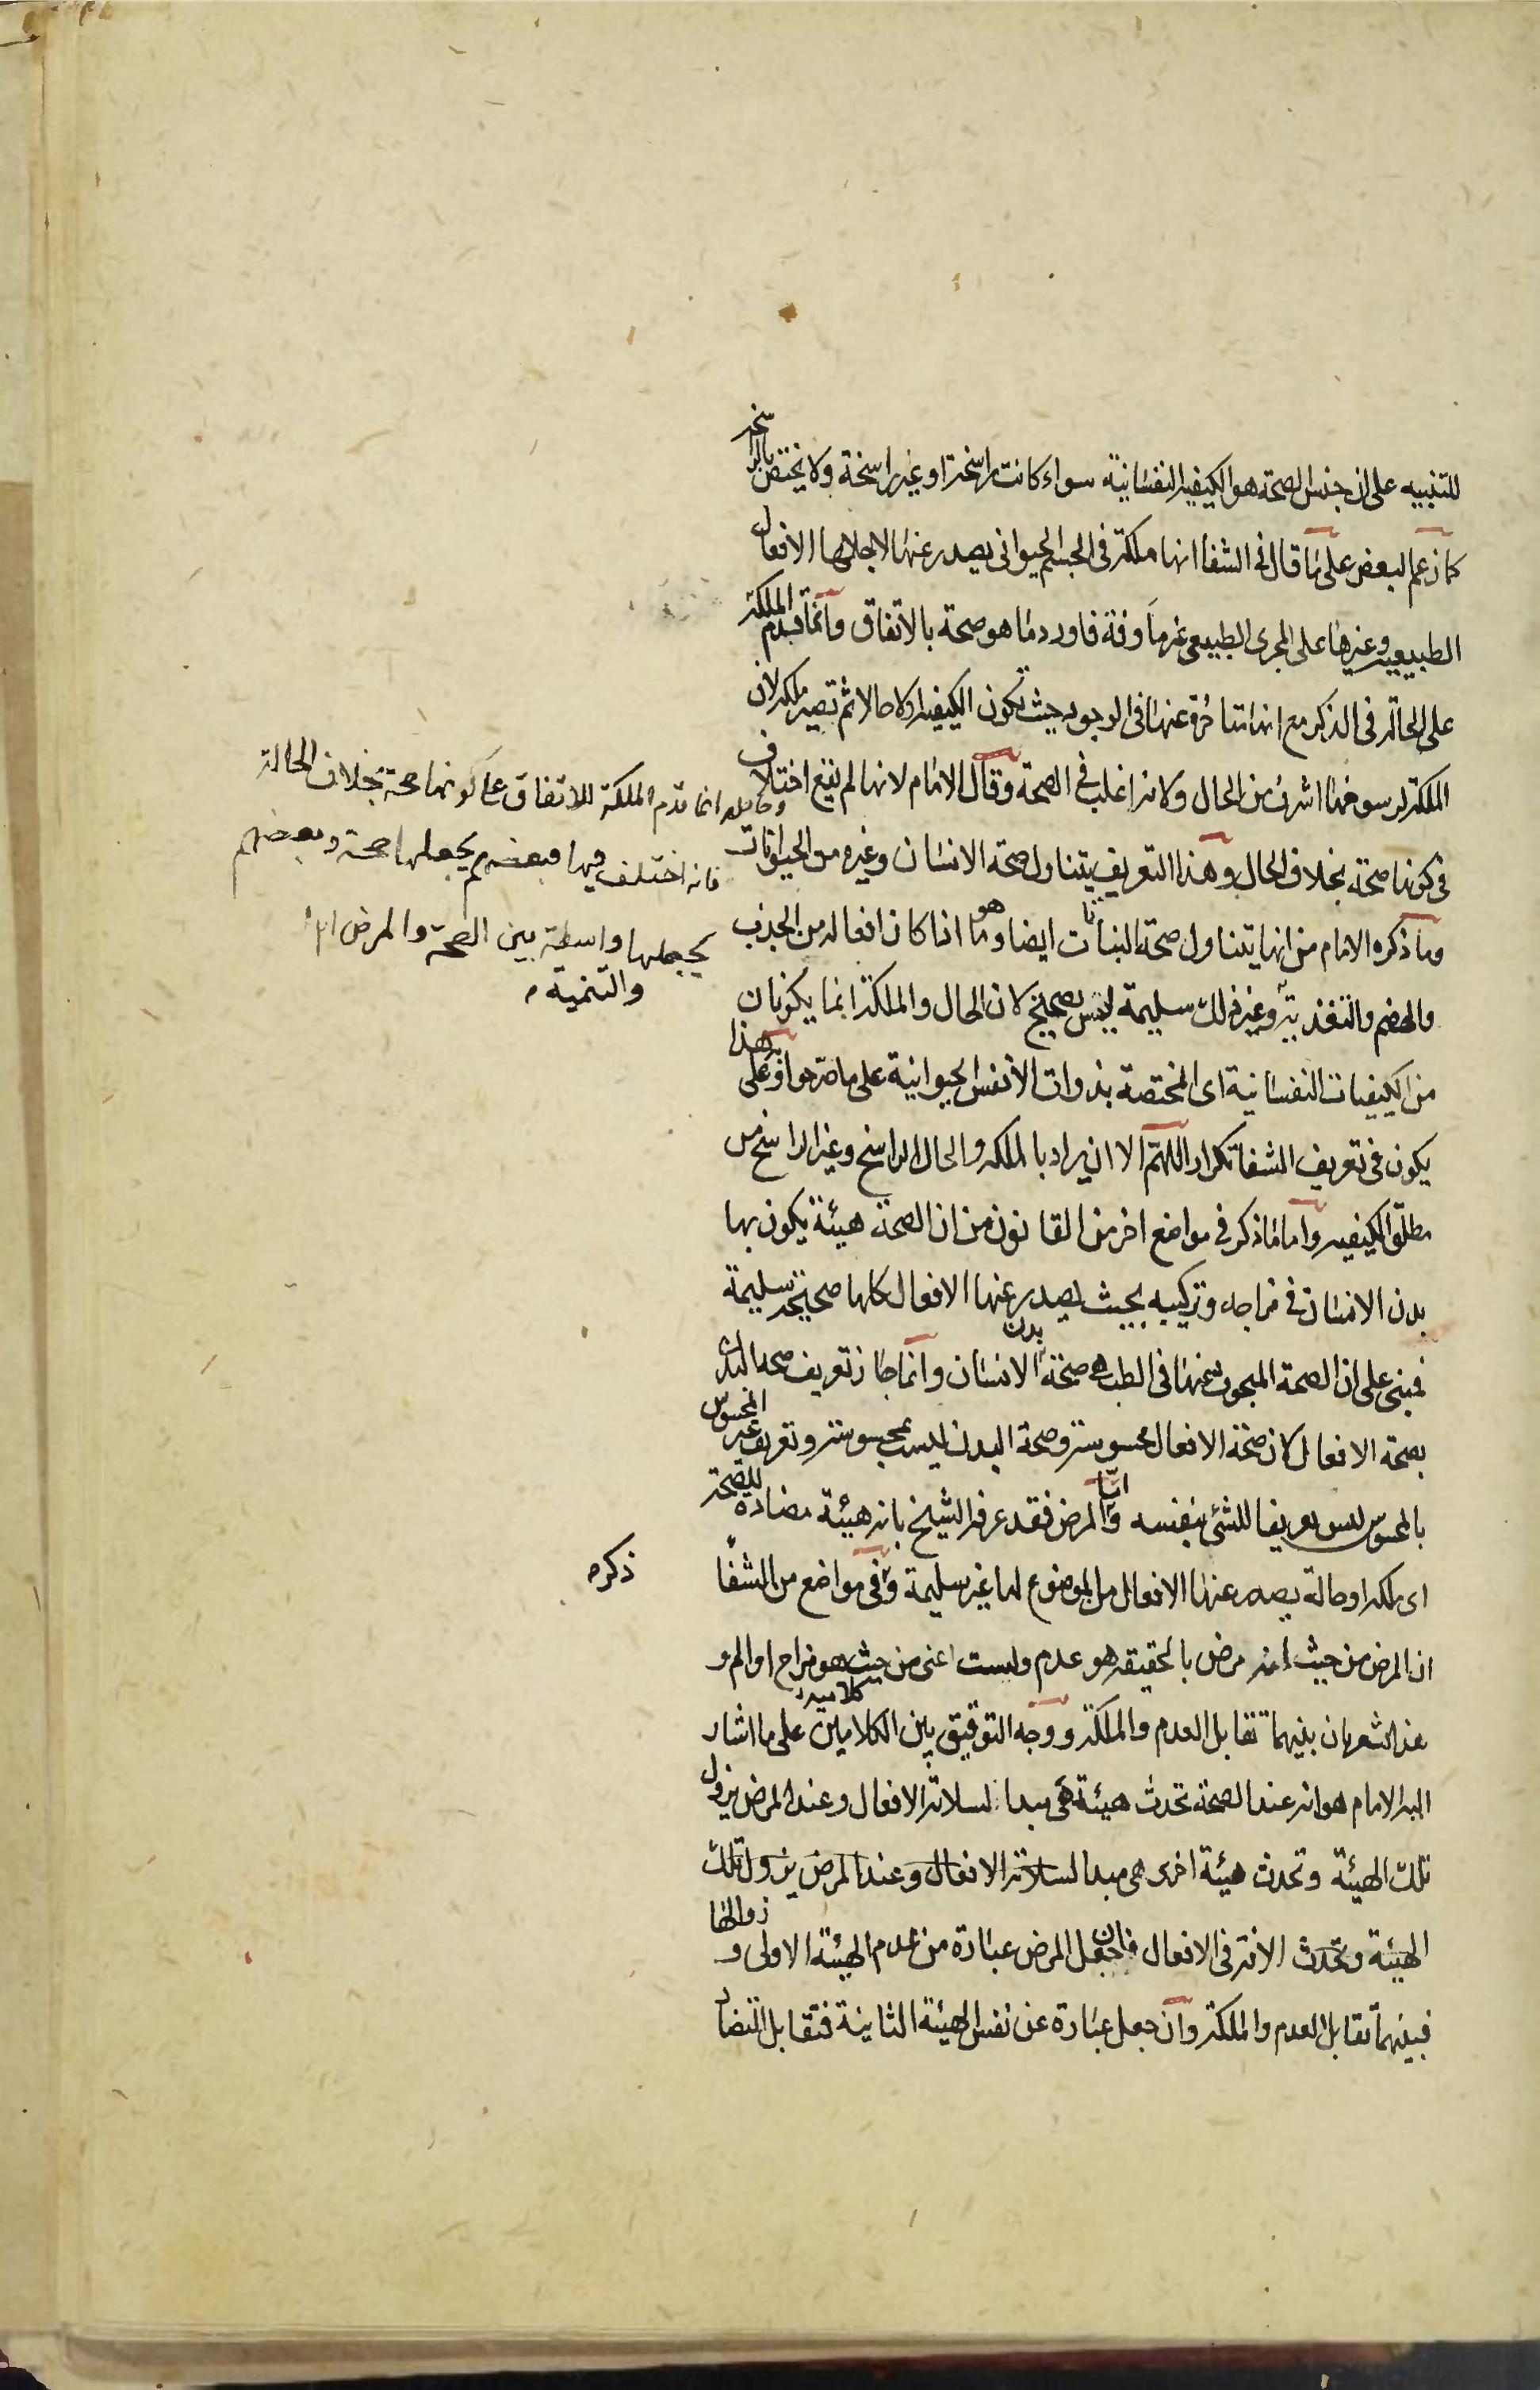 للتنبيه على ان جنس الصحة هو الكيفية النفسانية سواء كانت راسخة او غير راسخة ولا يختص بالراسخة
كما زعم البعض على ما قال فى الشفا انها ملكة فى الجسم الحيوانى يصدر عنها لاجلها الافعال
الطبيعية وغيرها على المجرى الطبيعى غير مأوفة فاورد ما هو صحة بالاتفاق وانما قدم الملكة
على الحالة فى الذكر مع انها متاخرة عنها فى الوجود حيث تكون الكيفية اولا حالا ثم تصير ملكة لان
الملكة لرسوخها اشرف من الحال ولانها اغلب فى الصحة وقال الامام لانها لم يقع اختلاف
فى كونها صحة بخلاف الحال وهذا التعريف يتناول صحة الانسان وغيره من الحيوانات
وما ذكره الامام من انها يتناول صحة النباتات ايضا وهو ما اذا كان افعاله من الجذب
والهضم والتغذية وغير ذلك سليمة ليس بصحيح لان الحال والملكة انما يكونان
من الكيفيات النفسانية اى المختصة بذوات الأنفس الحيوانية على ما صرحوا به وعلى هذا
يكون فى تعريف الشفا تكرار اللهم الا ان يراد بالملكة والحال الراسخ وغير الراسخ من
مطلق الكيفية واما ما ذكر فى مواضع اخر من القانون من ان الصحة هيئة يكون بها
بدن الانسان فى مزاجه وتركيبه بحيث يصدر عنها الافعال كلها صحيحة سليمة
فمبنى على ان الصحة المبحوث عنها فى الطب هى صحة بدن الانسان وانما جاز تعريف صحة البدن
بصحة الافعال لان صحة الافعال محسوسة وصحة البدن ليست بمحسوسة وتعريف غير المحسوس
بالمحسوس ليس تعريفا للشئ بنفسه واما المرض فقد عرفه الشيخ بانه هيئة مضادة للصحة
اى ملكة او حالة يصدر عنها الافعال من الموضوع لها غير سليمة وفى مواضع من الشفا
ان المرض من حيث انه مرض بالحقيقة هو عدم وليست اعنى من حيث هو مزاج او الم و
هذا يشعر بان بينهما تقابل العدم والملكة ووجه التوفيق بين الكلامين كلاميه على ما اشار
اليه الامام هو انه عند الصحة تحدث هيئة هى مبدا لسلامة الافعال وعند المرض يزول
تلك الهيئة وتحدث هيئة اخرى هى مبدا لسلامة الافعال وعند المرض يزول تلك
الهيئة وتحدث الافة فى الافعال فان جعل المرض عبارة من عدم الهيئة الاولى و زوالها
فبينهما تقابل العدم والملكة وان جعل عبارة عن نفس الهيئة الثانية فتقابل التضاد
وحاصله انما قدم الملكة للاتفاق على كونها صحة بخلاف الحالة
فانه اختلف فيها فبعضهم يجعلها صحة وبعضهم
يجعلها واسطة بين الصحة والمرض
والتنمية
ذكره